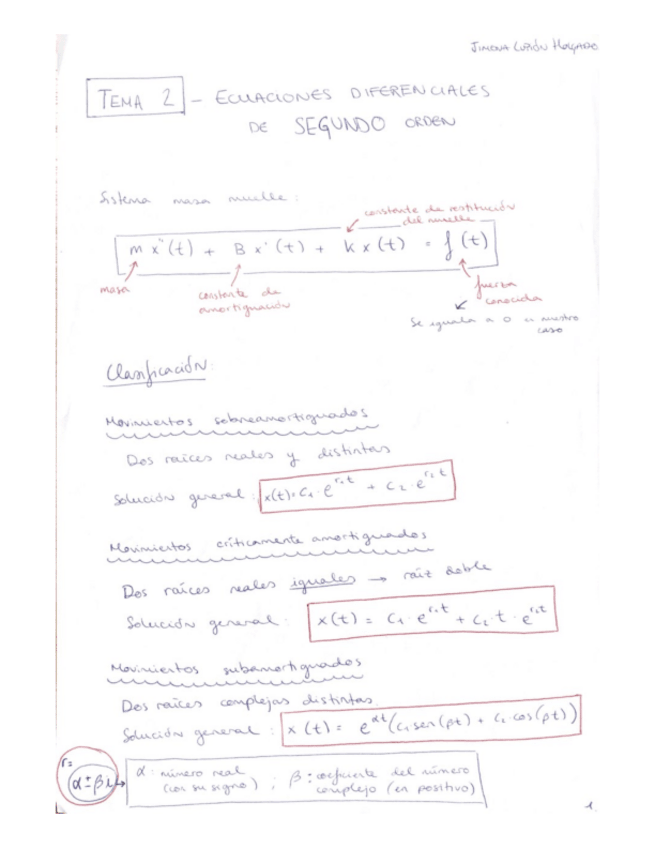 JIMENA LUPIÓN HOLGADO
TEMA 2 - ECUACIONES DIFERENCIALES
DE SEGUNDO ORDEN
Sistema masa muelle:
constante de restitución
del muelle
m x''(t) + B x'(t) + k x(t) = f(t)
masa
constante de
amortiguación
fuerza
conocida
Se iguala a 0 en nuestro
caso
Clasificación:
Movimientos sobreamortiguados
Dos raíces reales y distintas
Solución general: x(t)= C₁·e^r₁t + C₂·e^r₂t
Movimientos críticamente amortiguados
Dos raíces reales iguales → raíz doble
Solución general: x(t) = C₁·e^r₁t + C₂·t·e^r₁t
Movimientos subamortiguados
Dos raíces complejas distintas
Solución general: x(t) = e^αt(C₁sen(βt) + C₂·cos(βt))
r=
α±βi → α: número real
(con su signo) ; β: coeficiente del número
complejo (en positivo)
1